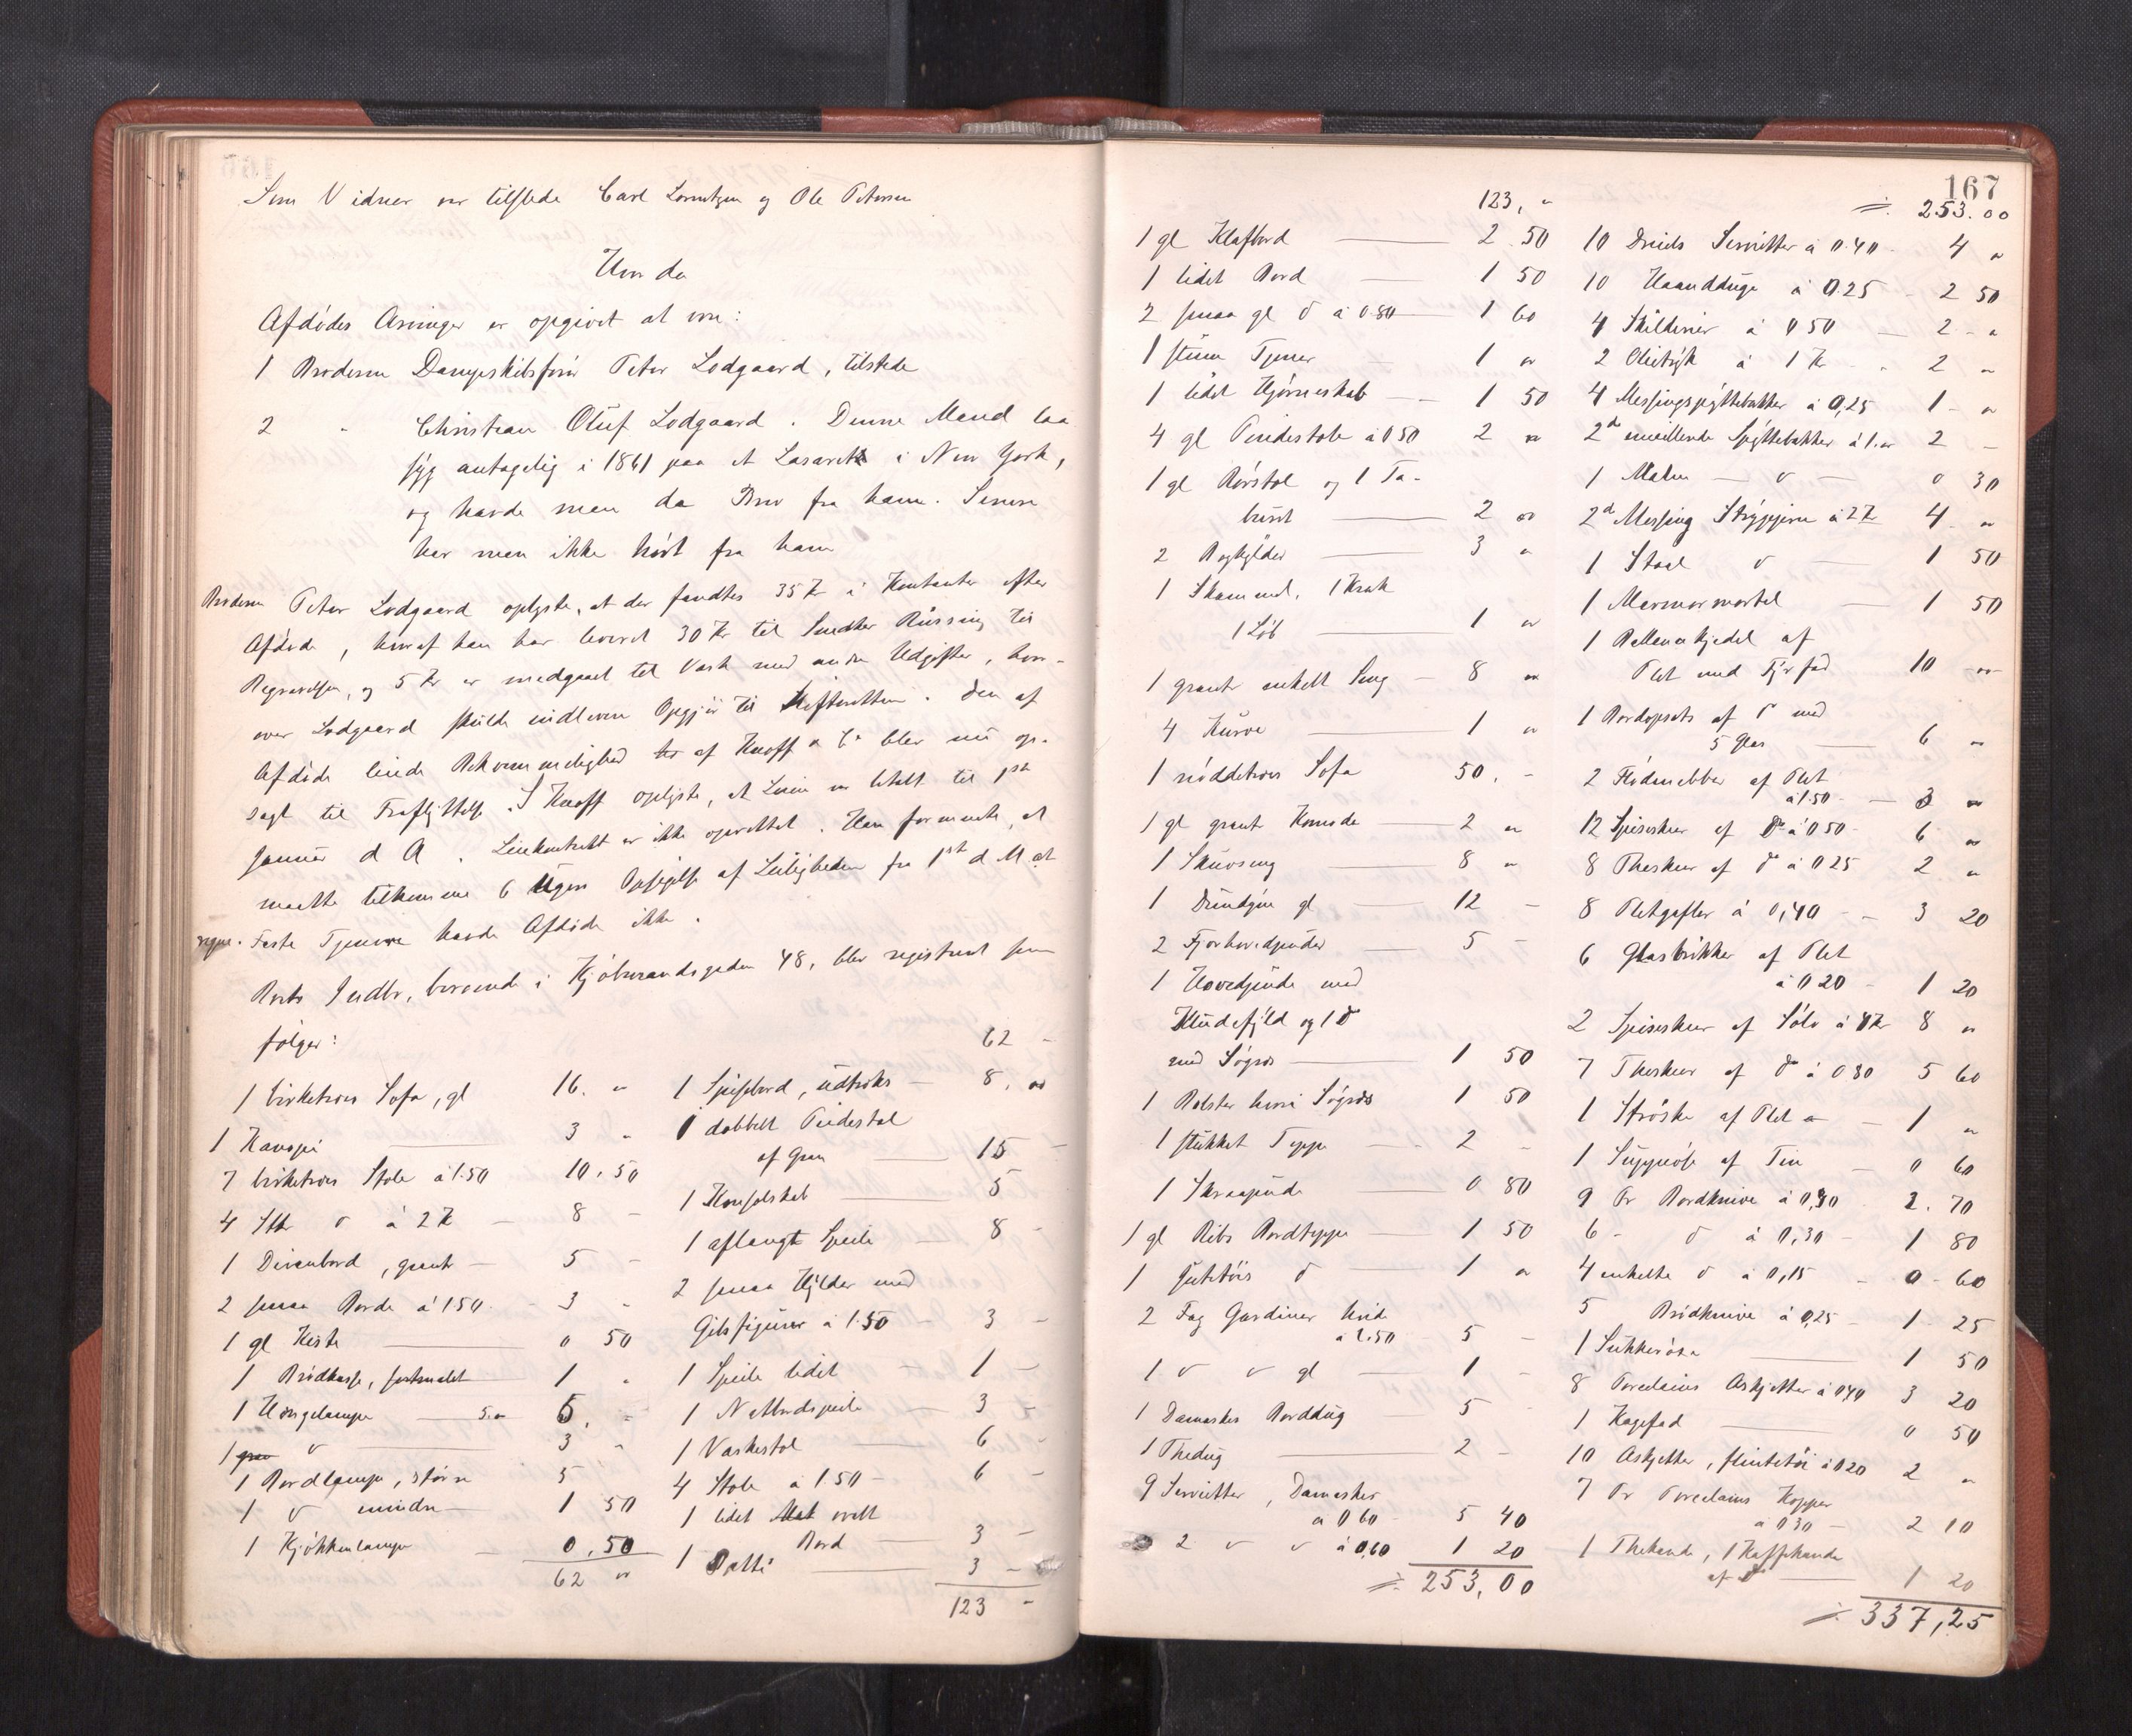 Som Vidner var tilstede Carl Lorentzen og Ole Petersen
Hvor da
Afdødes Arvinger er opgivet at være:
1 Broderen Dampskibsfører Peter Lodgaard, tilstede
2 " Christian Oluf Lodgaard. Denne Mand laa
syg antagelig i 1861 paa et Lasareth i New York,
og havde man da Brev fra ham. Senere
har man ikke hørt fra ham
Broderen Peter Lodgaard oplyste, at der fandtes 35 Kr i Kontanter efter
Afdøde, hvoraf han har leveret 30 Kr til Snedker Rüssing til
Begravelsen, og 5 Kr er medgaaet til Vask med andre Udgifter, hvor-
over Lodgaard skulde indlevere Opgjør til Skifteretten. Den af
Afdøde leiede Bekvemmelighed af Knoff & Co blev nu op-
sagt til Fraflyttelse. S Knoff oplyste, at Leien er betalt til 1ste
Januar d A. Leiekontrakt er ikke oprettet. Han formente, at
maatte tilkomme 6 Ugers Opsigelse af Leiligheden fra 1st d M at
regne. Faste Tjenere havde Afdøde ikke.
Boets Indbo, beroende i Kjøbmandsgaden 48, blev registreret som
følger:
62 -
1 birketræes Sofa, gl 16. "
1 Kanapé 3 "
7 birketræes Stole à 1.50 10.50
4 Stk d à 2 Kr 8 -
1 Divanbord, grant 5 -
2 smaa Borde à 150 3 "
1 gl Kiste 0 50
1 Brødkasse, sortmalet 1 "
1 Hængelampe 5." 5. "
1 d 3 "
1 Bordlampe, større 5 -
1 d mindre 1 50
1 Kjøkkenlampe 0,50
62 "
1 Spisebord, udtræks 8. "
1 dobbelt Pindestol
af Gran 15 -
1 Konsolskab 5
1 aflangt Speile 8 -
2 smaa Hylder med
Gibsfigurer à 1.50 3 -
1 Speile lidet 1 -
1 Natbordspeile 3 -
1 Vaskestol 6 -
4 Stole à 150 6 -
1 lidet ovalt
Bord 3 -
1 3 -
123 -
167
123, "
1 gl Klafbord 2 50
1 lidet Bord 1 50
2 smaa gl d à 0.80 1 60
1 stum Tjener 1 "
1 lidet Hjørneskab 1 50
4 gl Pindestole à 0 50 2 "
1 gl Rørstol og 1 Ta-
buret 2 "
2 Boghylder 3 "
1 Skammel, 1 Krak
1 Løb 1 "
1 grant enkelt Seng 8 "
4 Kurve 1 "
1 nøddetræes Sofa 50. -
1 gl grant Komode 2 "
1 Skuvseng 8 "
1 Dundyne gl 12 -
2 Fjærhovedpuder 5 -
1 Hovedpude med
Kludefyld og 1 d
med Søgræs 1 50
1 Bolster hvori Søgræs 1 50
1 stukket Teppe 2 -
1 Skraapude 0 80
1 gl Ribs Bordteppe 1 50
1 Jutetøis d 1 "
2 Fag Gardiner hvide
à 2.50 5 -
1 d d gl 1 -
1 Damaskes Borddug 5 -
1 Thedug 2 -
9 Servietter, Damaskes
à 0 60 5 40
2 d d à 0,60 1 20
253,00
253.00
10 Dreiels Servietter à 0.40 4 "
10 Haandduge à 0.25 2 50
4 Skilderier à 0 50 2 - "
2 Olietryk à 1 Kr 2 "
4 Messingspyttebakker à 0,25 1 - "
2 Spyttebakker à 1." 2 -
1 Malm d 0 30
2 Messing Strygejern à 2 Kr 4 "
1 Staal d 1 50
1 Marmormortel 1 50
1 Ballonkjedel af
Plet med Fyrfad 10 "
1 Bordopsats af d med
5 Glas 6 "
2 Flødenebber af Plet
à 1.50 3 "
12 Spiseskeer af d à 0 50 6 "
8 Theskeer af d à 0 25 2 "
8 Pletgafler à 0,40 3 20
6 Glasbrikker af Plet
à 0 20 1 20
2 Spiseskeer af Sølv à 4 Kr 8 "
7 Theskeer af d à 0 80 5 60
1 Strøske af Plet 1 "
1 Suppeøse af Tin 0 60
9 Pr Bordknive à 0,30 2.70
6 - d à 0,30 1 80
4 enkelte d à 0,15 0 - 60
5 Brødknive à 0,25 1 - 25
1 Sukkerøse 1 50
8 Porcelains Askjetter à 0,40 3 20
1 Kagefad 0 50
10 Askjetter, flintetøi à 0 20 2 "
7 Pr Porcelains Kopper
à 0 30 2 10
1 Thekande, 1 Kaffekande
af d 1 20
337,25